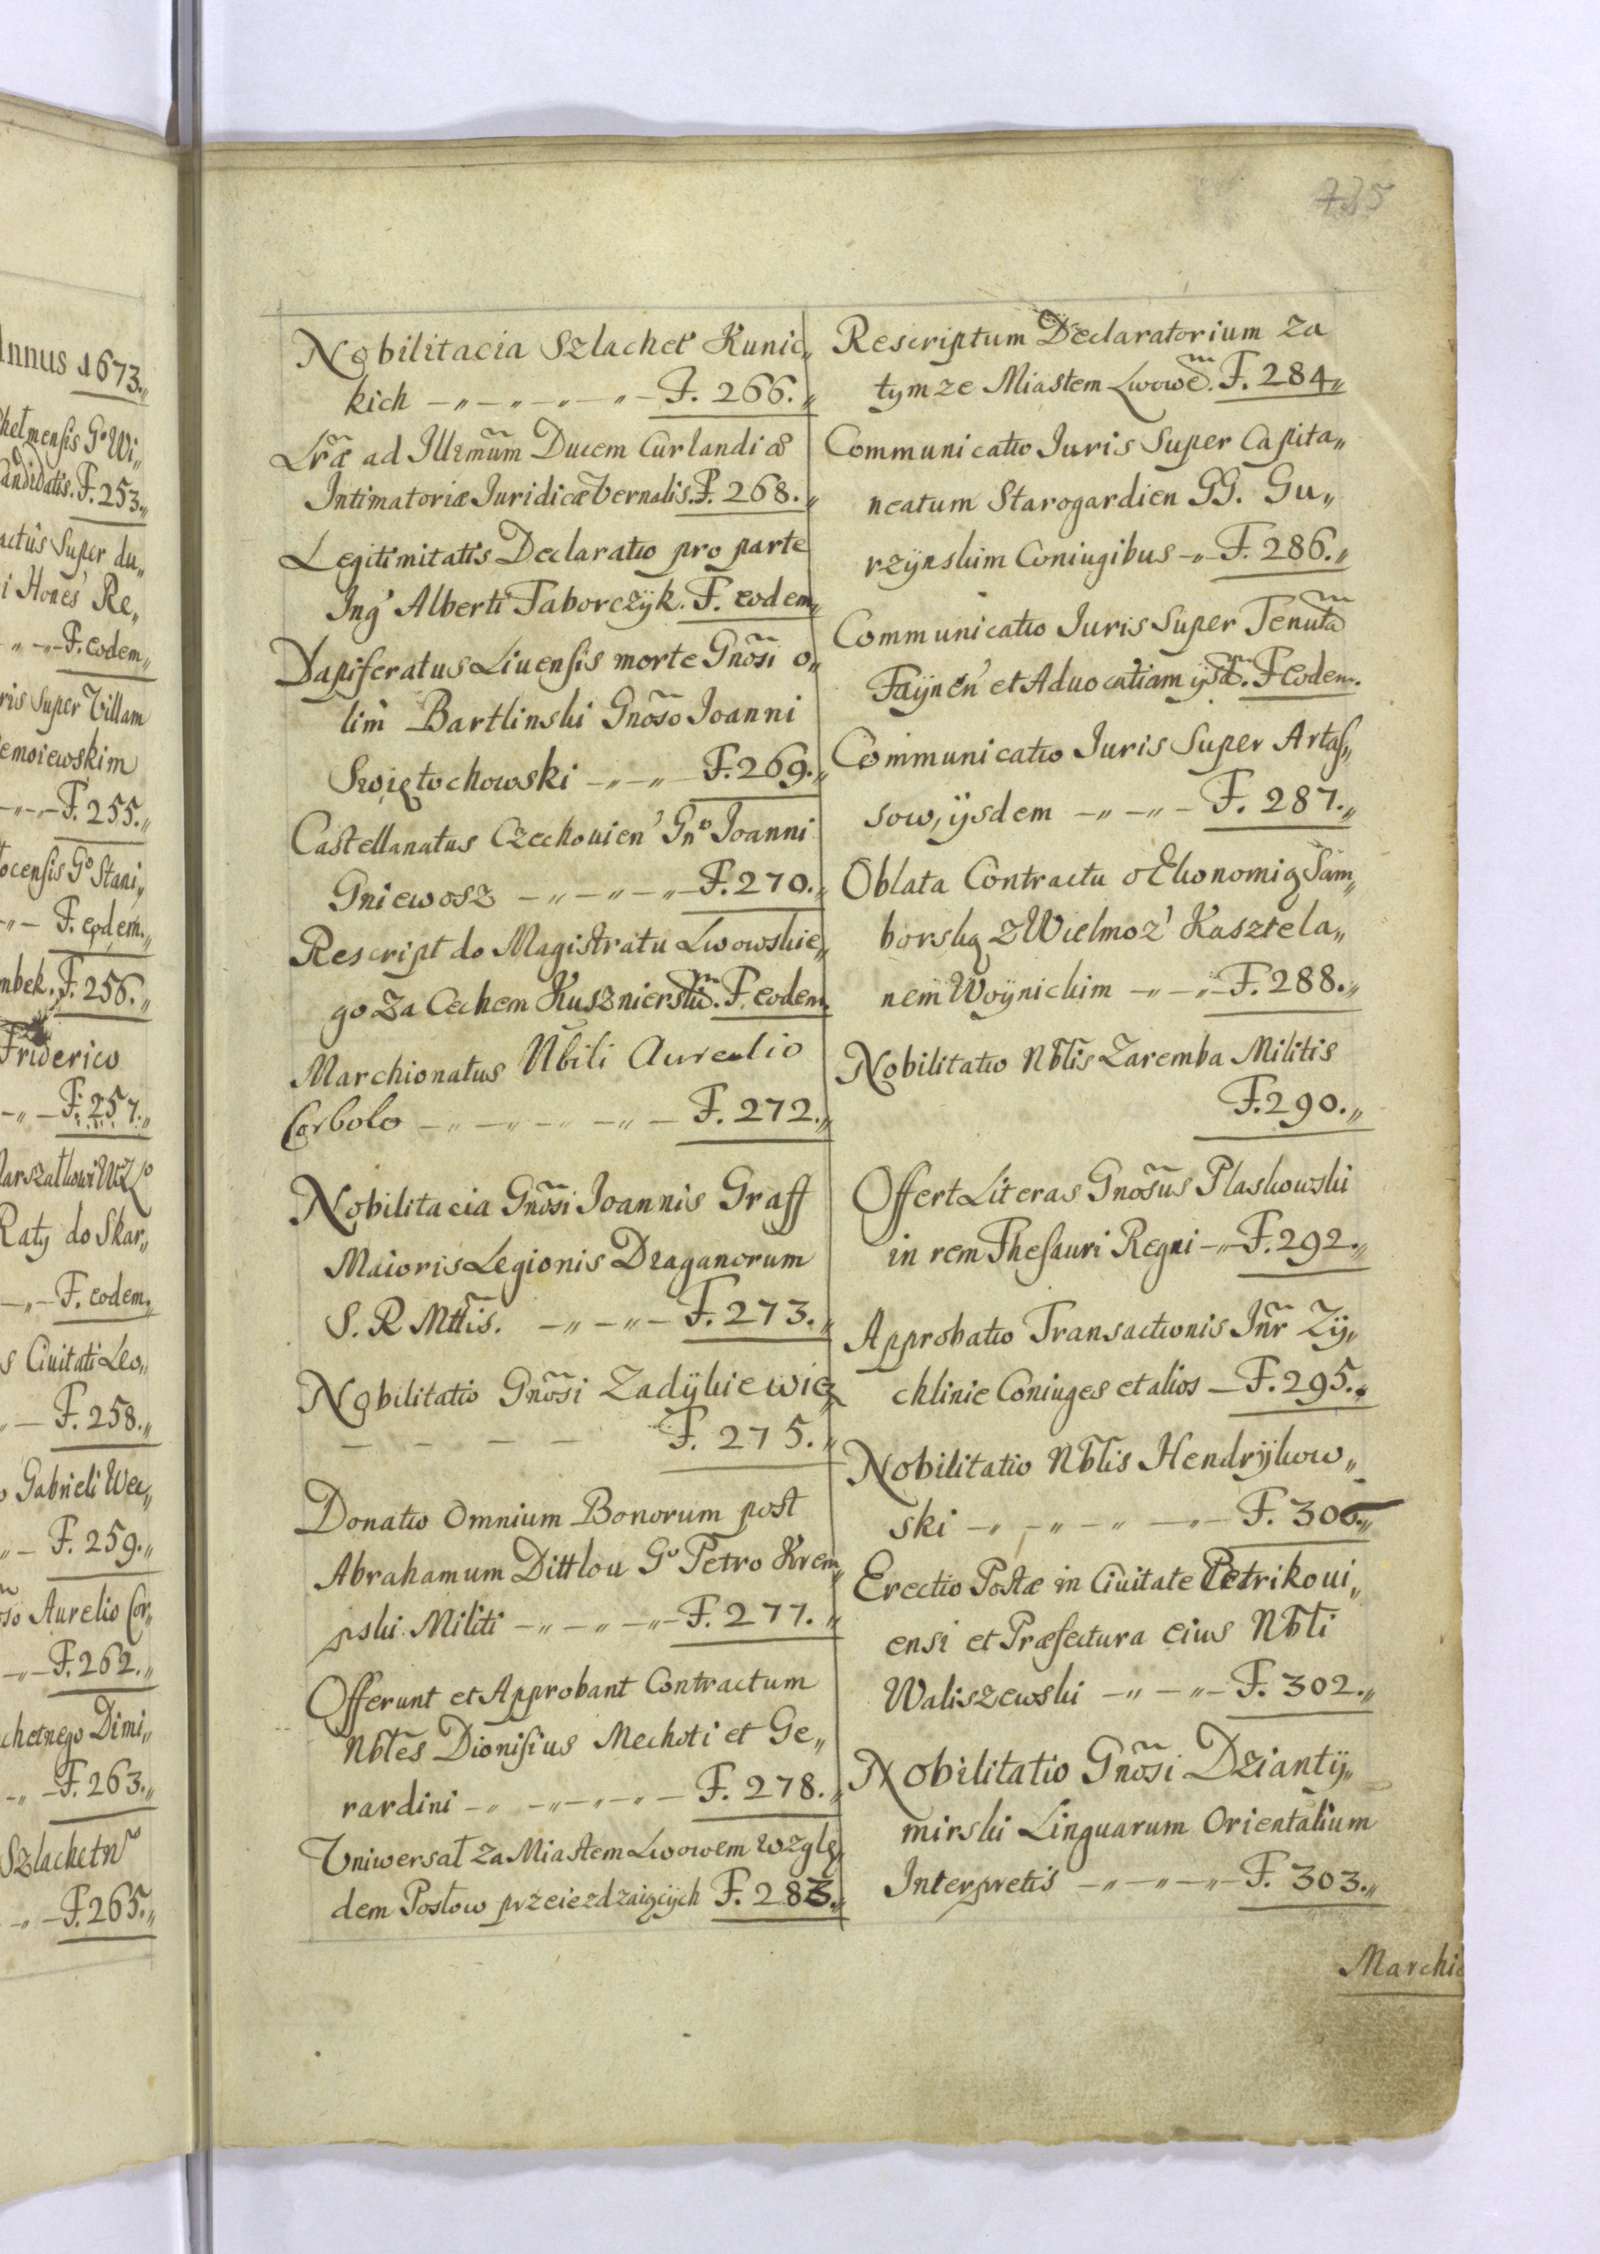 Annus 1673.„
helmensis G° Wi„
andidatis. F. 253.„
actûs Super du„
i Hones Re„
„ — F. eodem„
ris Super Villam
emoiewskim
— „ — F. 255.„
ocensis G° Stani„
„ — F. eodem.„
mbek. F. 256.„
Friderico
— „ — F. 257.„
arszałkowi
Raty do Skar„
— „ — F. eodem„
s Ciuitati Leo„
„ — F. 258.„
o Gabrieli Wee„
„ — F. 259.„
oso Aurelio Cor„
— „ — F. 262.„
chetnego Dimi„
„ — F. 263.„
Szlachetn
„ — F. 265.„
Nobilitacia Szlachet Kunic„
kich — „ — „ — „ — „ — F. 266.„
Lræ ad Illmum Ducem Curlandiæ
Intimatoriæ Juridicæ Vernalis. F. 268.„
Legitimitatis Declaratio pro parte
Ing' Alberti Taborczÿk. F. eodem„
Dapiferatus Liuensis morte Gnosi o„
lim Bartlinski Gnoso Joanni
Swiętochowski — „ — „ — F. 269.„
Castellanatus Czechouien' Gn° Joanni
Gniewosz — „ — „ — „ — F. 270.„
Rescript do Magistratu Lwowskie„
go za Cechem Kusznierskim. F. eodem
Marchionatus Nbili Aurelio
Corbolo — „ — „ — „ — „ — F. 272.„
Nobilitacia Gnosi Joannis Graff
Maioris Legionis Draganorum
S. R Mttis. — „ — „ — F. 273.„
Nobilitatio Gnosi Zadÿkiewicz
— — — — F. 275.„
Donatio Omnium Bonorum post
Abrahamum Dittlou G° Petro Krem„
pski Militi — „ — „ — „ — F. 277.„
Offerunt et Approbant Contractum
Nbles Dionisius Mechoti et Ge„
rardini — „ — „ — „ — „ — F. 278.„
Uniwersał za Miastem Lwowem wzglę„
dem Posłow przeiezdzaiących F. 283.„
Rescriptum Declaratorium za
tymze Miastem Lwowem. F. 284„
Communicatio Juris Super Capita„
neatum Starogardien GG. Gu„
rzÿnskim Coniugibus — „ F. 286.„
Communicatio Juris Super Tenuta
Faÿnen' et Aduocatiam ÿsdem. F eodem.
Communicatio Juris Super Artas„
sow, ÿsdem — „ — „ — F. 287.„
Oblata Contractu o Ekonomię Sam„
borską z Wielmoz' Kasztela„
nem Woÿnickim — „ — „ — F. 288.„
Nobilitatio Nblis Zaremba Militis
F. 290.„
Offert Literas Gnosus Plaskowski
in rem Thesauri Regni — „ — F. 292.„
Approbatio Transactionis Inr Zÿ„
chlinie Coniuges et alios — F. 295.„
Nobilitatio Nblis Hendrÿkow„
ski — „ — „ — „ — „ — F. 300.„
Erectio Postæ in Ciuitate Petrikoui„
ensi et Præfectura eius Nbli
Waliszewski — „ — „ — F. 302.„
Nobilitatio Gnosi Dziantÿ„
mirski Linguarum Orientalium
Interpretis — „ — „ — „ — F. 303.„
Marchio